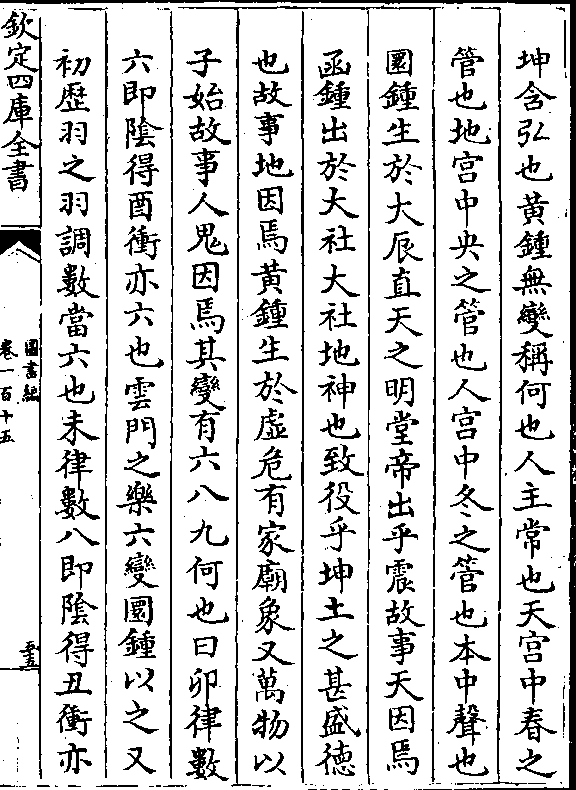 坤含弘也黃鍾無變稱何也人主常也天宮中春之
管也地宮中央之管也人宮中冬之管也本中聲也
圜鍾生於大辰直天之明堂帝出乎震故事天因焉
函鍾出於大社大社地神也致役乎坤土之甚盛德
也故事地因焉黃鍾生於虛危有家廟象又萬物以
子始故事人鬼因焉其變有六八九何也曰卯律數
六即陰得酉衝亦六也雲門之樂六變圜鍾以之又
初歷羽之羽調數當六也未律數八即陰得丑衝亦
欽定四庫全書
圖書編
卷一百十五
五